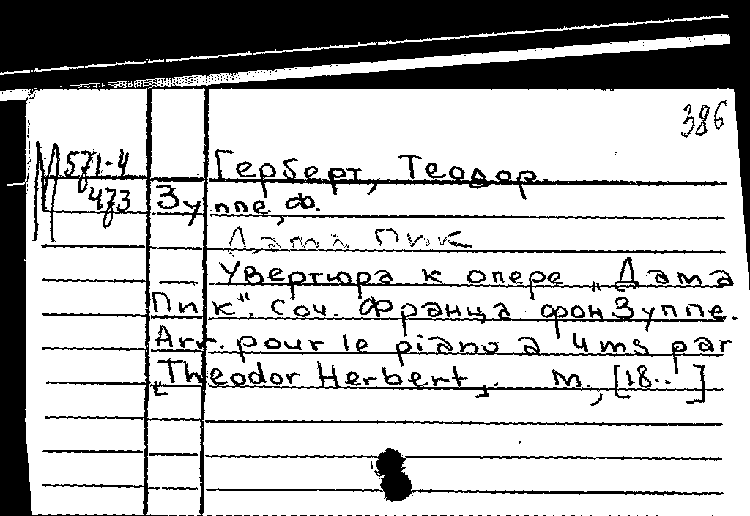 386
М 571-4
473
Герберт, Теодор.
Зуппе, Ф.
Дама пик
Увертюра к опере „Дама
Пик". Соч. Франца фон Зуппе.
Arr. pour le piano a 4 ms par
[Theodor Herbert]. м., [18..]